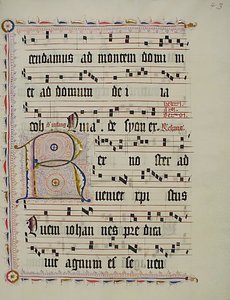 43
cendamus ad montem domini
et ad domum dei ia
cob quia de syon et
Rex noster ad
ueniet xpistus
Quem iohannes predica
uit agnum esse uen